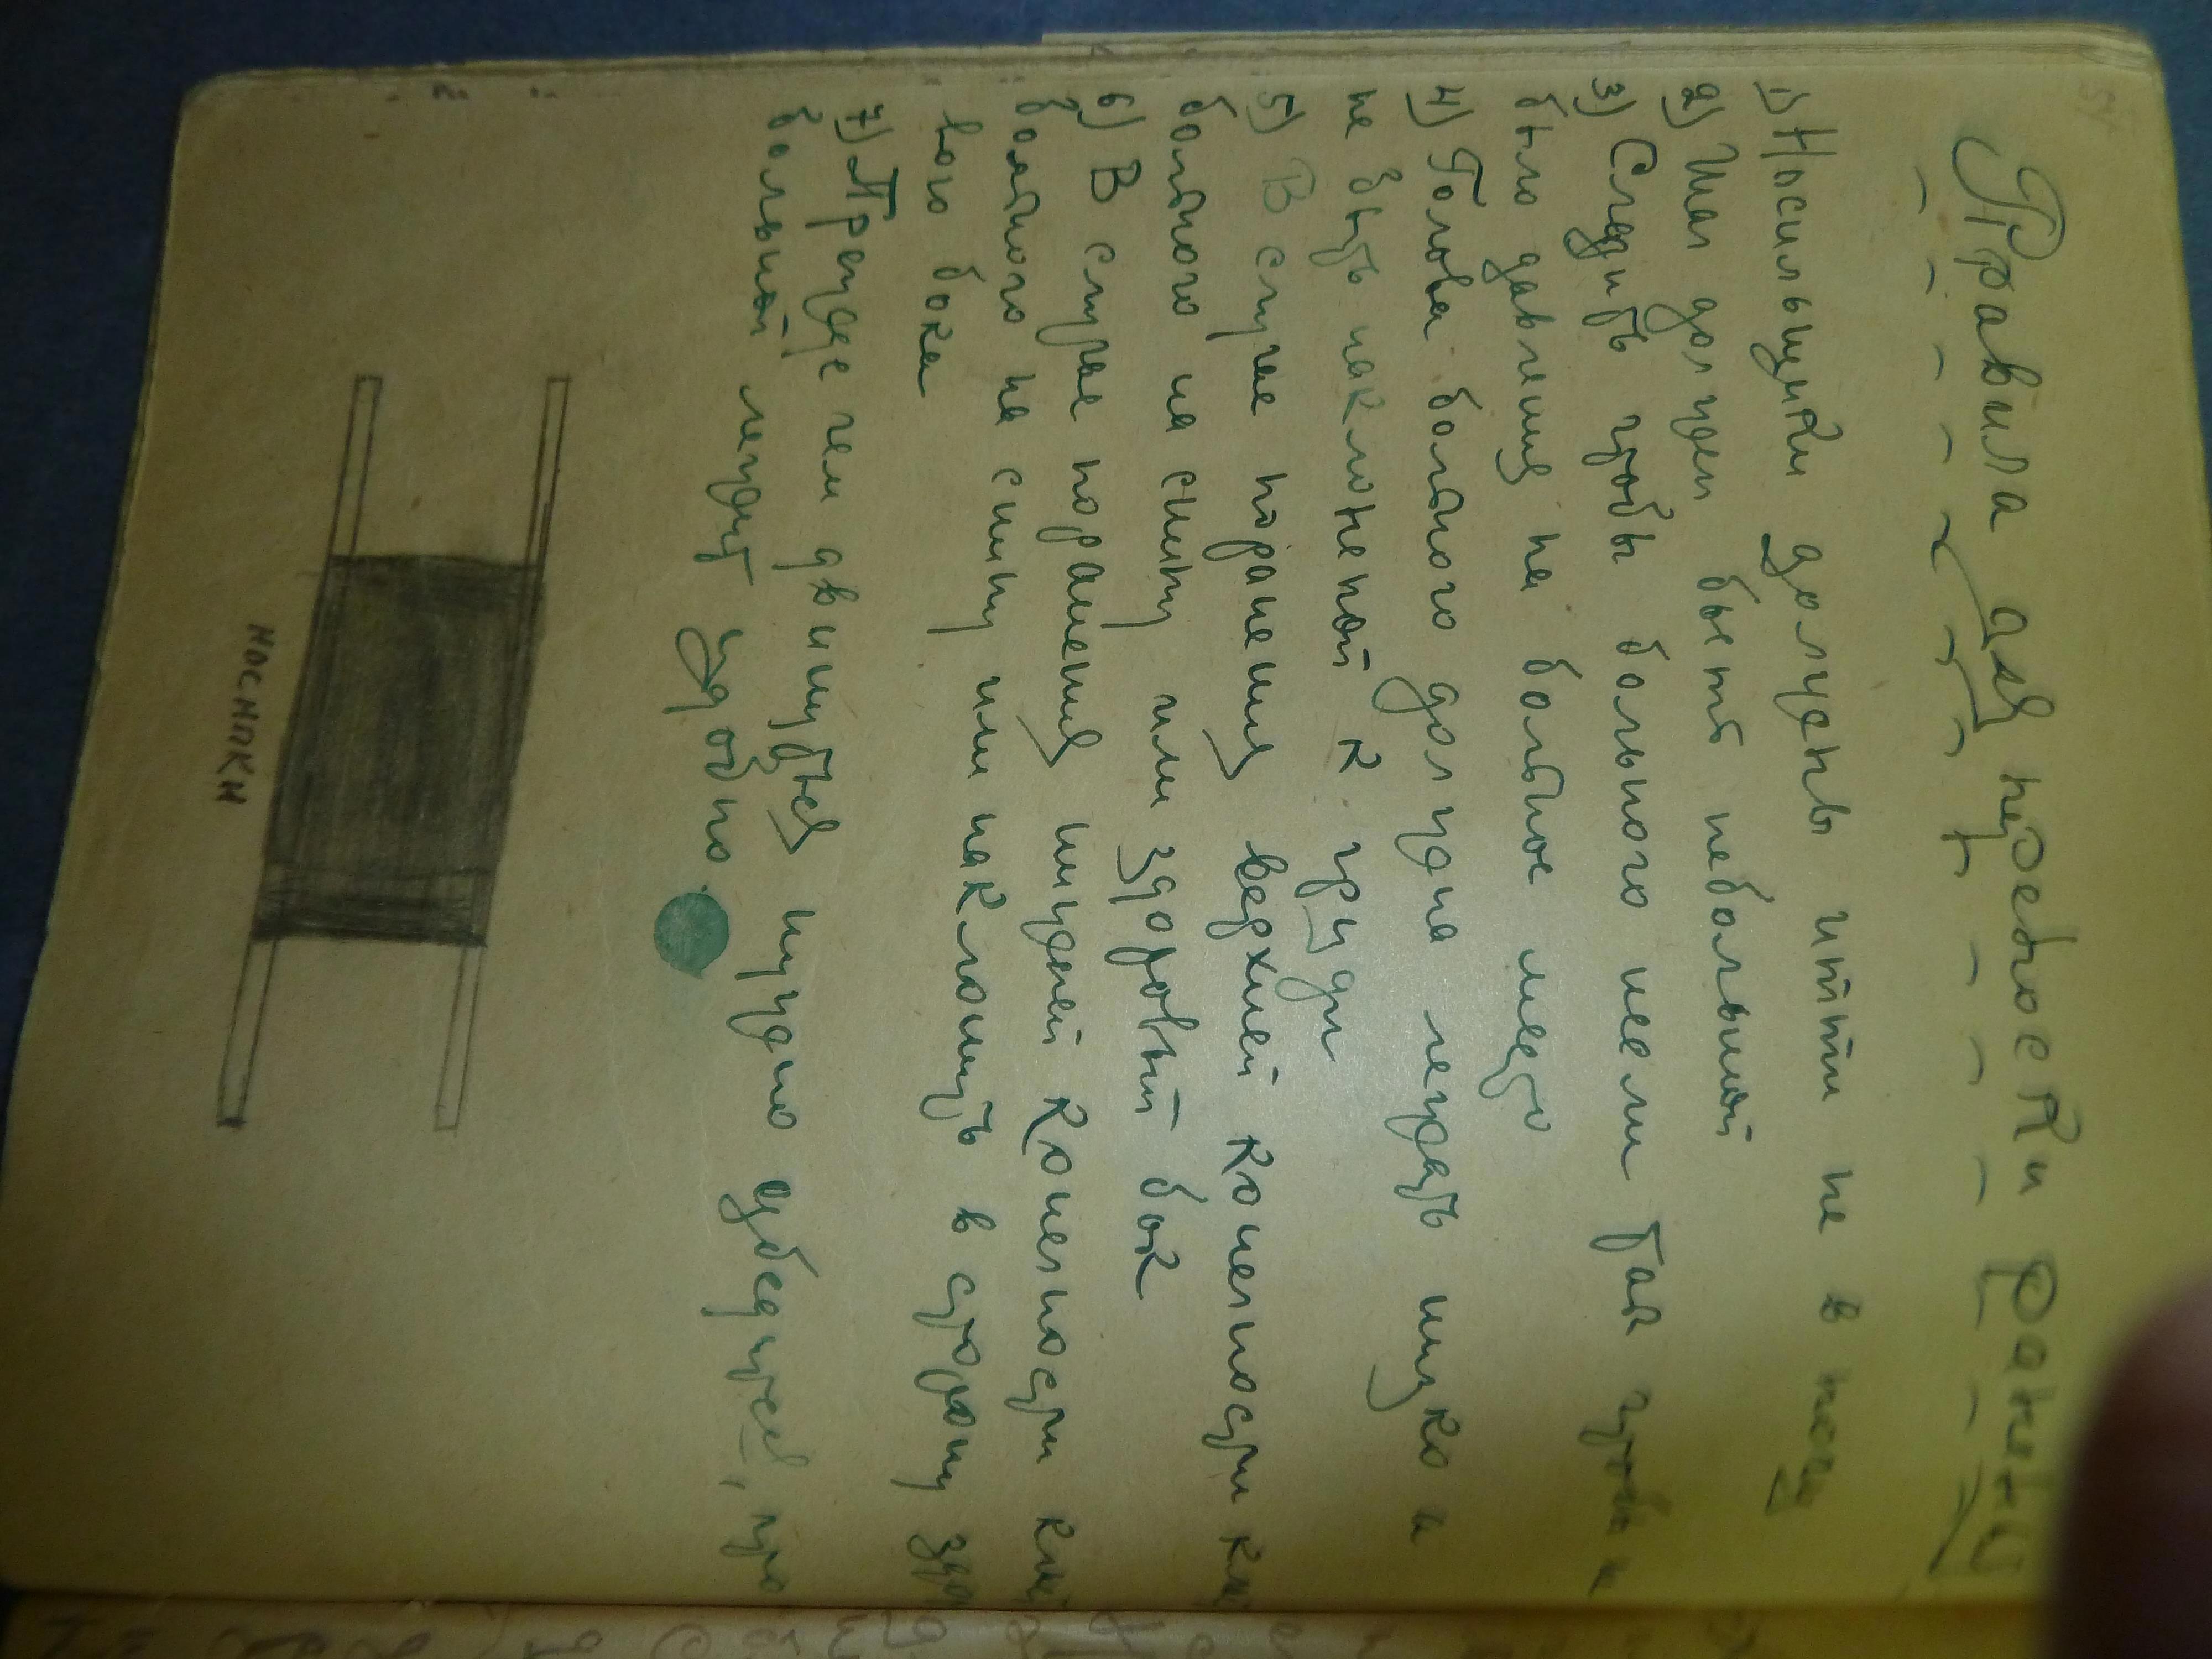 Правила для переноски ранены
1) Носильщики должны итти не в ногу
2) Шаг должен быть небольшой
3) Следить чтобы больного несли так чтобы н
было давления на больное место
4) Голова больного должна лежать низко и
не быть наклоненой к груди
5) В случае поранения верхней конечности кла
больного на спину или здоровый бок
6) В случае поранения нижней конечности кла
больного на спину или наклонить в сторону здо
вого бока
7) Прежде чем двинуться нужно убедиться, что
больной лежит удобно.
носилки